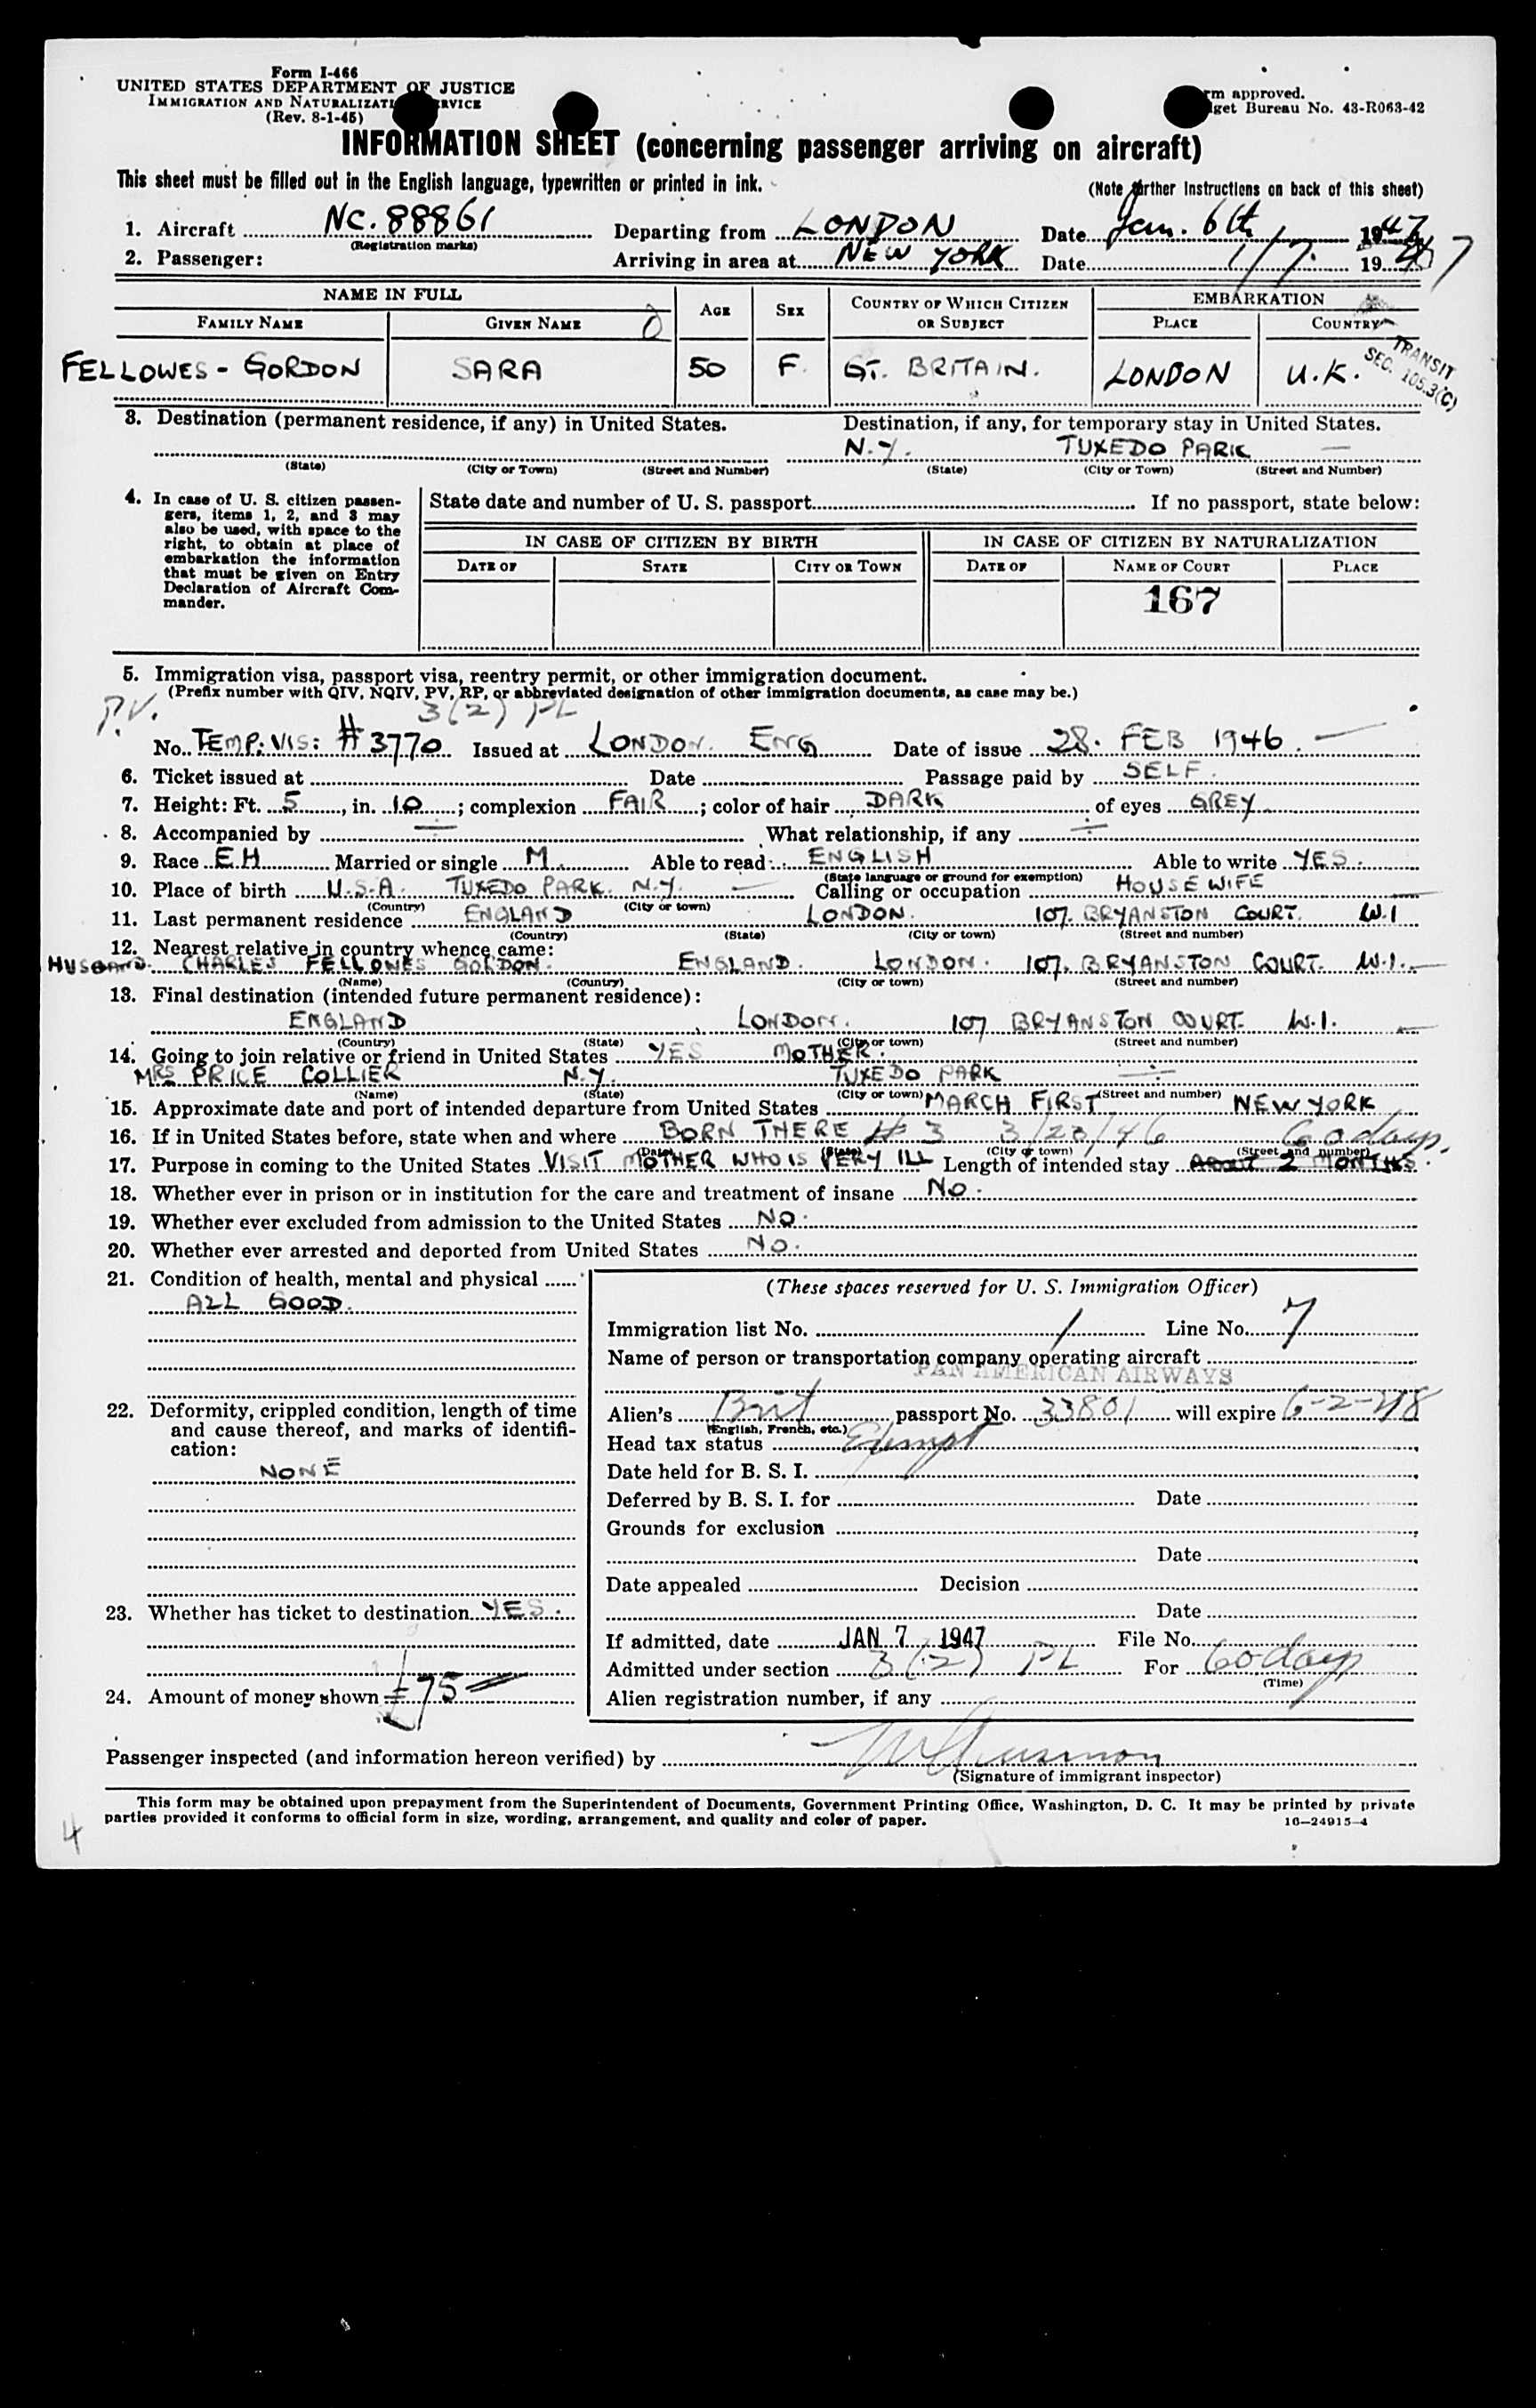 Form I-466
UNITED STATES DEPARTMENT OF JUSTICE
IMMIGRATION AND NATURALIZATI RVICE
(Rev. 8-1-45)
rm approved.
get Bureau No. 43-R063-42
INFORMATION SHEET (concerning passenger arriving on aircraft)
This sheet must be filled out in the English language, typewritten or printed in ink.
(Note further instructions on back of this sheet)
1. Aircraft NC. 88861 Departing from LONDON Date Jan. 6th 1947
(Registration marks)
2. Passenger: Arriving in area at NEW YORK Date 1/7 1947
NAME IN FULL AGE SEX COUNTRY OF WHICH CITIZEN OR SUBJECT EMBARKATION
FAMILY NAME GIVEN NAME PLACE COUNTRY
FELLOWES - GORDON SARA 50 F. GT. BRITAIN. LONDON U.K.
TRANSIT
SEC. 105.3(C)
3. Destination (permanent residence, if any) in United States. Destination, if any, for temporary stay in United States.
N.Y. TUXEDO PARK —
(State) (City or Town) (Street and Number) (State) (City or Town) (Street and Number)
4. In case of U. S. citizen passen-
gers, items 1, 2, and 3 may
also be used, with space to the
right, to obtain at place of
embarkation the information
that must be given on Entry
Declaration of Aircraft Com-
mander.
State date and number of U. S. passport If no passport, state below:
IN CASE OF CITIZEN BY BIRTH IN CASE OF CITIZEN BY NATURALIZATION
DATE OF STATE CITY OR TOWN DATE OF NAME OF COURT PLACE
167
5. Immigration visa, passport visa, reentry permit, or other immigration document.
(Prefix number with QIV, NQIV, PV, RP, or abbreviated designation of other immigration documents, as case may be.)
P.V. 3(2) PL
No. TEMP: VIS: #3770 Issued at LONDON. ENG Date of issue 28. FEB 1946. —
6. Ticket issued at Date Passage paid by SELF.
7. Height: Ft. 5, in. 10; complexion FAIR; color of hair DARK of eyes GREY
8. Accompanied by What relationship, if any
9. Race E.H Married or single M. Able to read ENGLISH Able to write YES.
(State language or ground for exemption)
10. Place of birth U.S.A. TUXEDO PARK. N.Y. — Calling or occupation HOUSEWIFE
(Country) (City or town)
11. Last permanent residence ENGLAND LONDON. 107. BRYANSTON COURT. W.1
(Country) (State) (City or town) (Street and number)
12. Nearest relative in country whence came:
HUSBAND. CHARLES FELLOWES GORDON. ENGLAND. LONDON. 107. BRYANSTON COURT. W.1.
(Name) (Country) (City or town) (Street and number)
13. Final destination (intended future permanent residence):
ENGLAND LONDON. 107 BRYANSTON COURT. W.1.
(Country) (State) (City or town) (Street and number)
14. Going to join relative or friend in United States YES MOTHER.
MRS PRICE COLLIER N.Y. TUXEDO PARK
(Name) (State) (City or town) (Street and number)
15. Approximate date and port of intended departure from United States MARCH FIRST NEW YORK
16. If in United States before, state when and where BORN THERE # 3 3/23/46 60 days.
(Date) (State) (City or town) (Street and number)
17. Purpose in coming to the United States VISIT MOTHER WHO IS VERY ILL Length of intended stay ABOUT 2 MONTHS.
18. Whether ever in prison or in institution for the care and treatment of insane NO.
19. Whether ever excluded from admission to the United States NO.
20. Whether ever arrested and deported from United States NO.
21. Condition of health, mental and physical
ALL GOOD.
22. Deformity, crippled condition, length of time
and cause thereof, and marks of identifi-
cation:
NONE
23. Whether has ticket to destination YES.
24. Amount of money shown £75
(These spaces reserved for U. S. Immigration Officer)
Immigration list No. 1 Line No. 7
Name of person or transportation company operating aircraft
PAN AMERICAN AIRWAYS
Alien's Brit passport No. 33801 will expire 6-2-48
(English, French, etc.)
Head tax status Exempt
Date held for B. S. I.
Deferred by B. S. I. for Date
Grounds for exclusion
Date
Date appealed Decision
Date
If admitted, date JAN 7 1947 File No.
Admitted under section 3(2) PL For 60 days
(Time)
Alien registration number, if any
Passenger inspected (and information hereon verified) by
(Signature of immigrant inspector)
This form may be obtained upon prepayment from the Superintendent of Documents, Government Printing Office, Washington, D. C. It may be printed by private
parties provided it conforms to official form in size, wording, arrangement, and quality and color of paper.
16—24915-4
4